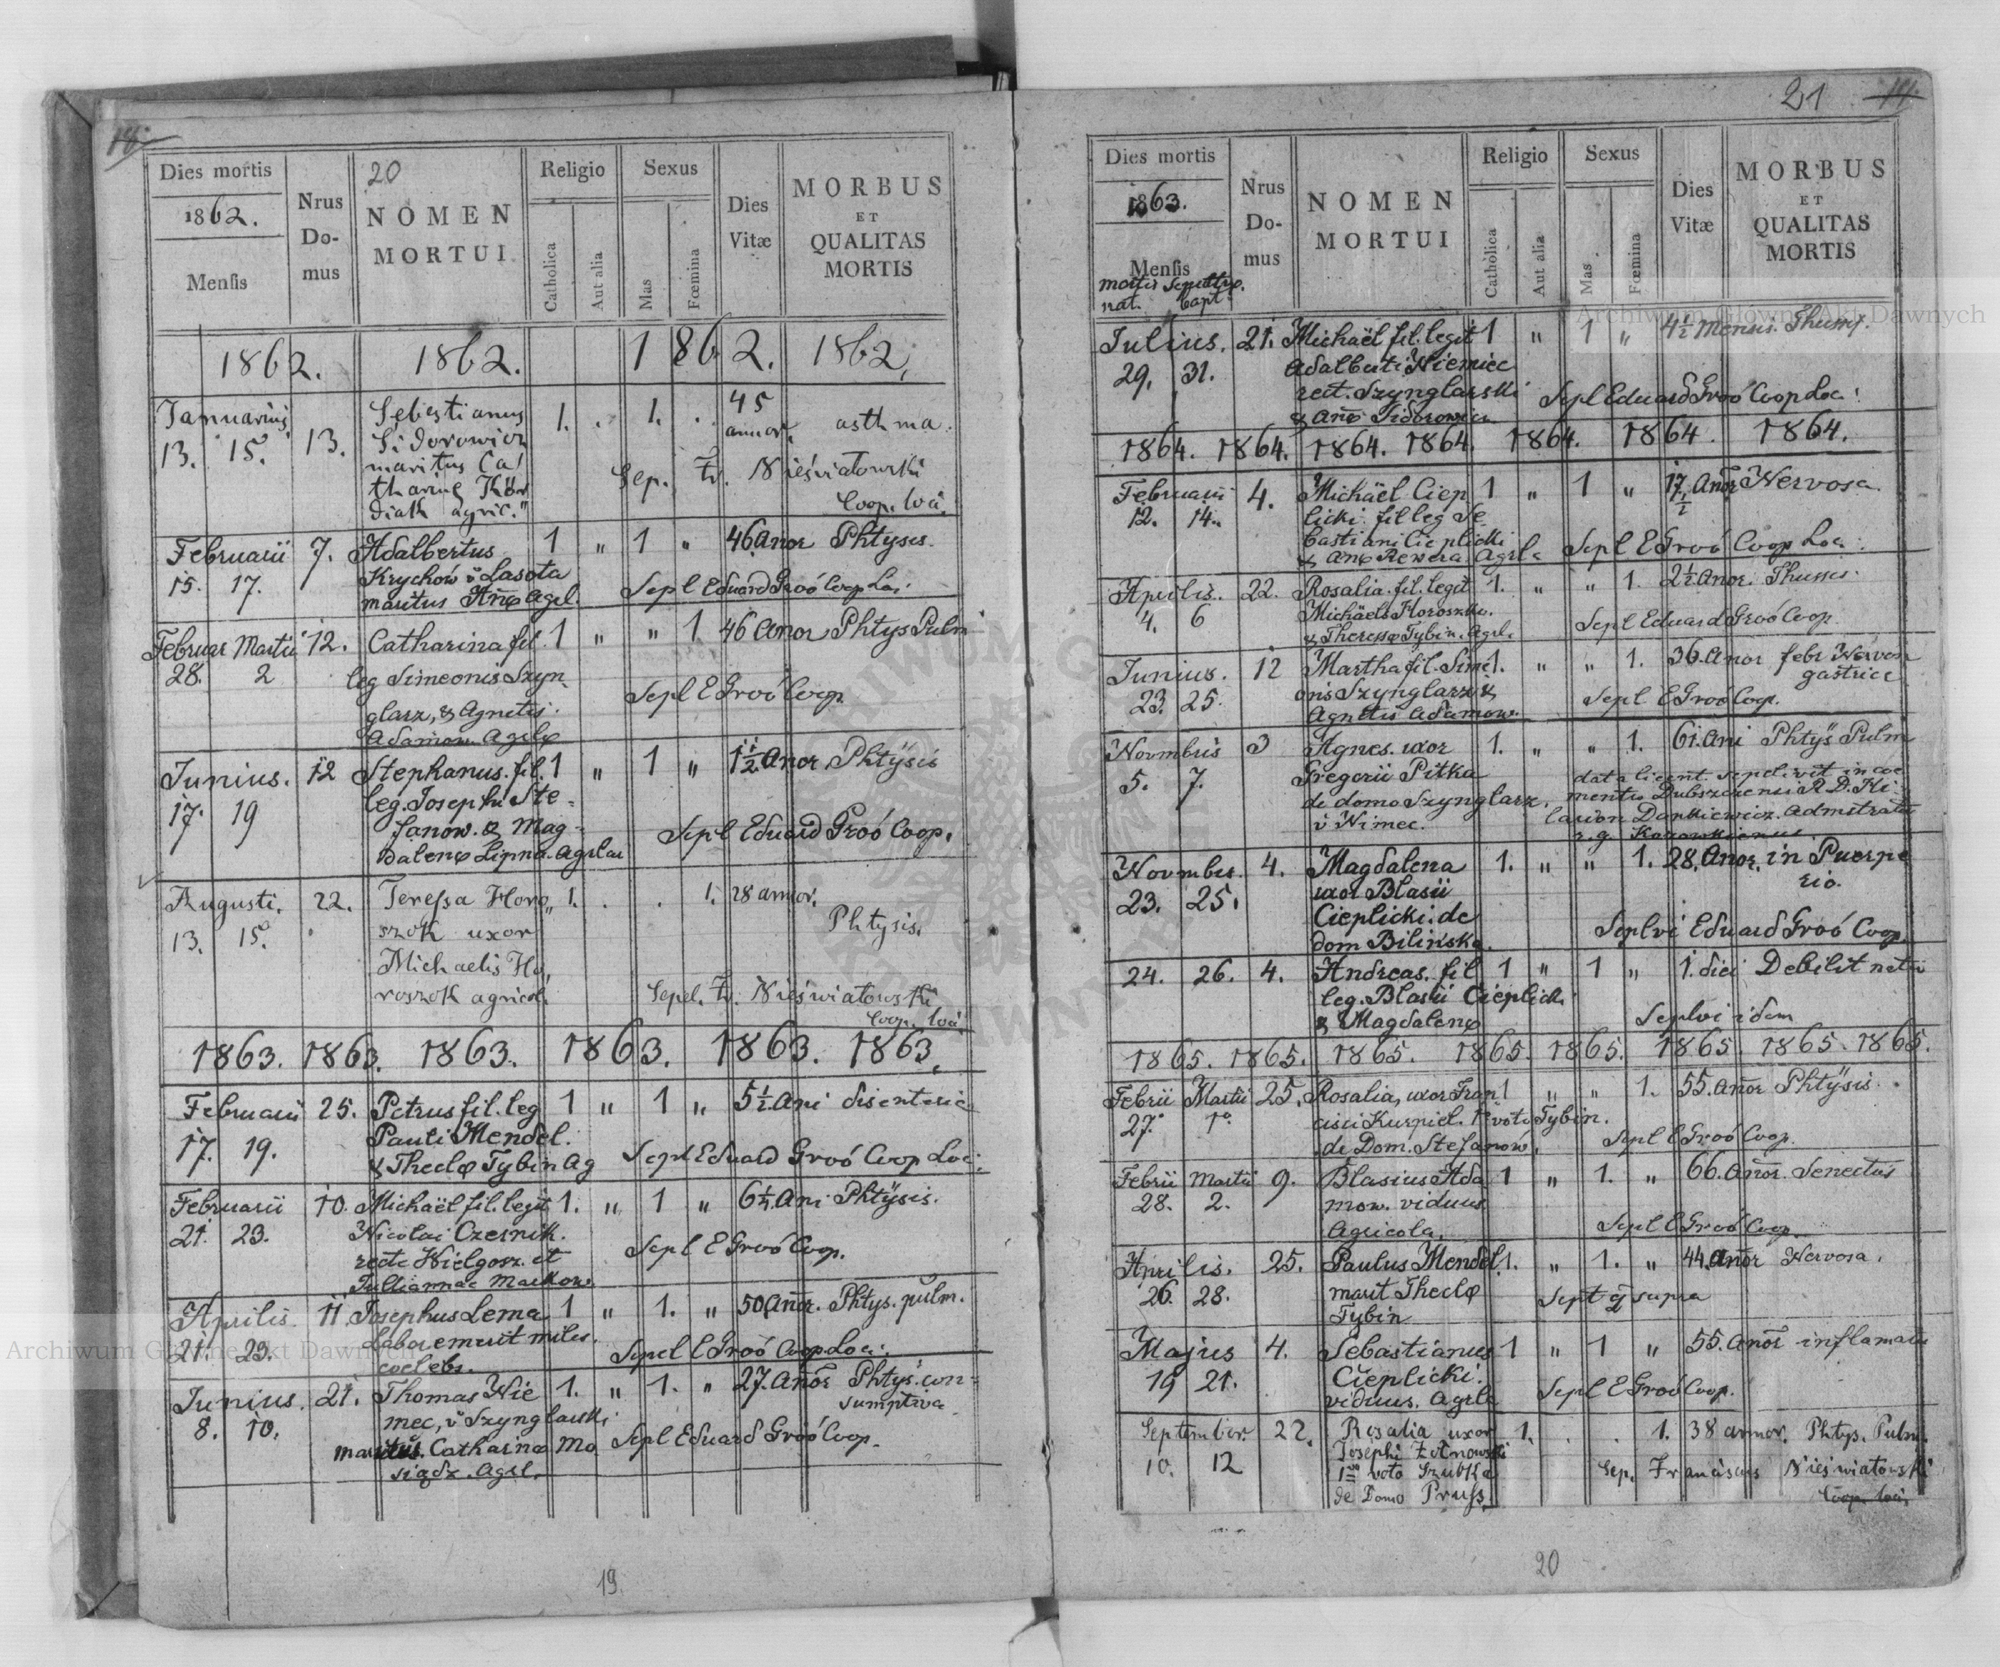 18.
Dies mortis
1862.
Mensis
Nrus
Do-
mus
20
NOMEN
MORTUI
Religio
Catholica
Aut alia
Sexus
Mas
Fœmina
Dies
Vitæ
MORBUS
ET
QUALITAS
MORTIS
1862. 1862. 1862. 1862.
Januarius 13. Sebestianus 1. . 1. . 45 annor. asthma.
13. 15. Sidorowicz
maritus Ca/
tharinę
diak agric. "
Sep. Fr. Nieświatowski
Coop. loci.
Februarii 7. Adalbertus 1 " 1 " 46 Anor Phtysis.
15. 17. Krychów v Lasota
maritus Anę Agrl. Sepl Eduard Groó Coop Loci.
Februar Martii 12. Catharina fil. 1 " " 1 46 Anor Phtys Pulm
28. 2 leg Simeonis Szyn
glarz, & Agnetis. Sepl E Groó Coop.
Adamow Agrlę
Junius. 12 Stephanus. fil. 1 " 1 " 1 1/2 Anor Phtÿsis
17. 19 leg. Josephi Ste-
fanow. & Mag-
dalenę Lipna. Agrlar Sepl Eduard Groó Coop.
Augusti. 22. Teressa Horo„ 1. . . 1. 28 annor. Phtysis.
13. 15. szok uxor
Michaelis Ho,
roszok agricol. Sepel. Fr. Nieświatowski
Coop. loci
1863. 1863. 1863. 1863. 1863. 1863.
Februarii 25. Petrus fil. leg 1 " 1 " 5 1/2 Ani disenteria
17. 19. Pauli Mendel.
& Theclę Tybin Ag Sepl Eduard Groó Coop Loci.
Februarii 10. Michaël fil. legit 1. " 1 " 6 1/2 Ani Phtÿsis.
21. 23. Nicolai Czesnik.
recte Wielgosz. et Sepl E Groó Coop.
Julliannae Markow
Aprilis. 11. Josephus Lema 1 " 1. " 50 Anor. Phtys. pulm.
21. 23. Labor emerit miles.
coelebs. Sepel E Groó Coop Loci.
Junius. 21. Thomas Nie 1. " 1. " 27. Anor Phtys. con=
sumptiva
8. 10. mec, v Szynglarski
maritus. Catharinę Mo Sepl Eduard Groó Coop.
siądz. Agrl.
19
21 19.
Dies mortis
1863.
Mensis
mortis Sepultus.
nat. bapt.
Nrus
Do-
mus
NOMEN
MORTUI
Religio
Catholica
Aut alia
Sexus
Mas
Fœmina
Dies
Vitæ
MORBUS
ET
QUALITAS
MORTIS
Julius. 21. Michaël fil. legit 1 " 1 " 4 1/2 Mensis.
29. 31. Adalberti Niemiec
rect. Szynglarski Sepl Eduard Groó Coop Loci.
& Anę Sidorowicz
1864. 1864. 1864. 1864. 1864. 1864. 1864.
Februarii 4. Michäel Ciep 1 " 1 " 17 Anor Nervosa.
12. 14. licki fil leg Se
bastiani Cieplicki
& Anę Rewera Agrlę Sepl E Groó Coop Loci.
Aprilis. 22. Rosalia. fil. legit 1. " " 1. 2 1/2 Anor.
4. 6 Michaelis Horoszko.
& Theresę Tybin. Agrl. Sepl Eduard Groó Coop.
Junius. 12 Martha fil. Sime 1. " " 1. 36. Anor febr Nervos
gastrica
23. 25. onis Szynglarz &
Agnetis Adamow. Sepl E Groó Coop.
Novmbris 3 Agnes. uxor 1. " " 1. 61. Ani Phtys Pulm
5. 7. Gregorii Pitka
de domo Szynglarz.
v Nimec.
data licent. sepelivit in coe
menterio Dubszczensi R. D. Hi-
larion Dankiewicz. Admitrator
r. g.
Novmbr. 4. Magdalena 1. " " 1. 28. Anor. in Puerpe
rio.
23. 25. uxor Blasii
Cieplicki. de
dom Bilińska. Seplvi Eduard Groó Coop.
24. 26. 4. Andreas. fil 1 " 1 " 1. diei Debilit nativ
leg. Blasii Cieplicki
& Magdalenę Seplvi idem
1865. 1865. 1865. 1865. 1865. 1865. 1865. 1865.
Febrii Martii 25. Rosalia, uxor Fran 1 " " 1. 55. Anor Phtÿsis.
27. 1. cisci Kurpiel. 1° voto Tybin.
de Dom. Stefanow. Sepl E Groó Coop.
Febrii Martii 9. Blasius Ada 1 " 1. " 66. Anor. Senectus
28. 2. mow. viduus
Agricola. Sepl E Groó Coop.
Aprilis. 25. Paulus Mendel 1. " 1. " 44. Anor Nervosa.
26. 28. marit Theclę
Tybin Sept q supra
Majus 4. Sebastianus 1 " 1 " 55. Anor inflamatio
19 21. Cieplicki.
viduus. Agrlę Sepl E Groó Coop.
September. 22. Rosalia uxor 1. . . 1. 38 annor. Phtys. Pulm.
10. 12 Josephi Żołnowski
1mo voto Szubka
de Domo Pruss. Sep. Franciscus Nieświatowski
Coop. loci
20
Archiwum Główne Akt Dawnych
Archiwum Główne Akt Dawnych